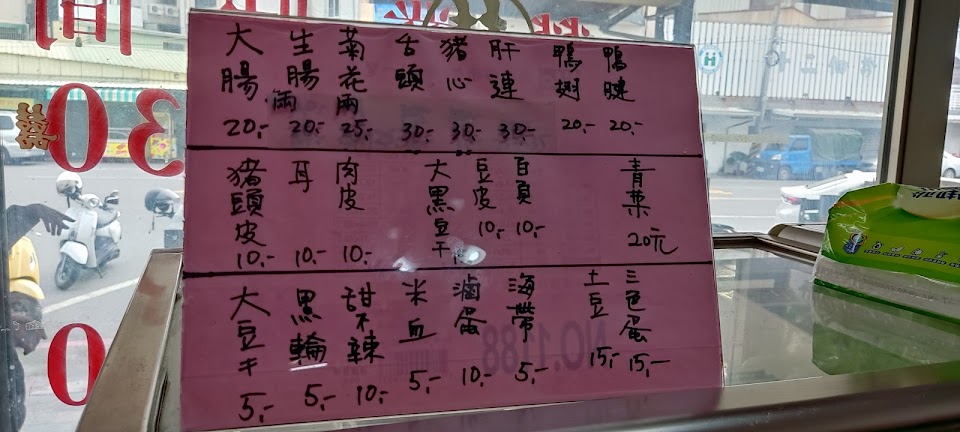 大腸 20.-
生腸 兩 20.-
菊花 兩 25.-
舌頭 30.-
豬心 30.-
肝連 30.-
鴨翅 20.-
鴨腱 20.-
豬頭皮 10.-
耳 10.-
肉皮 10.-
大黑豆干
豆皮 10.-
百頁 10.-
青菜 20元
大豆干 5.-
黑輪 5.-
甜不辣 10.-
米血 5.-
滷蛋 10.-
海帶 5.-
土豆 15.-
三色蛋 15.-
NO.1188
30
0